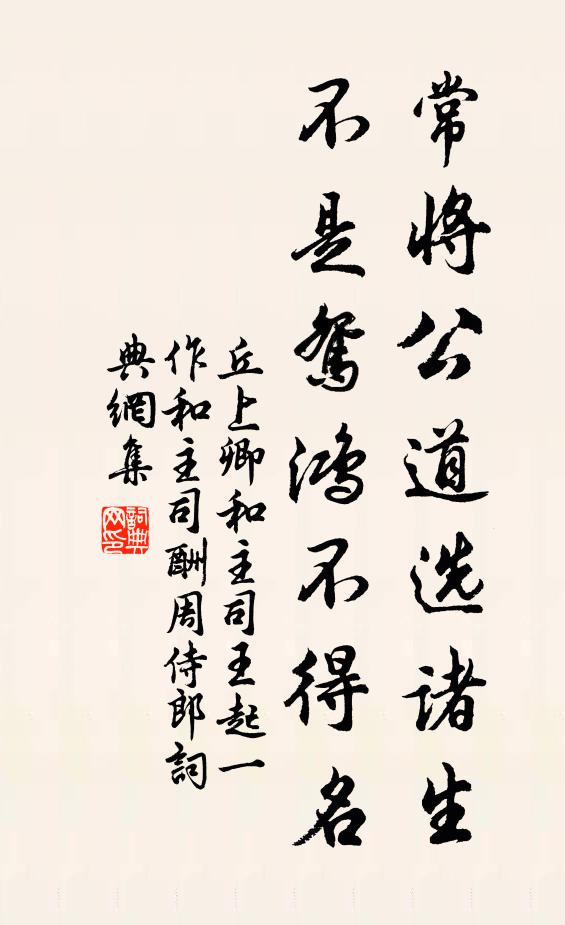 常将公道选诸生
不是鸳鸿不得名
丘上卿和主司王起一
作和主司酬周侍郎詞
典網集
詞典
网印